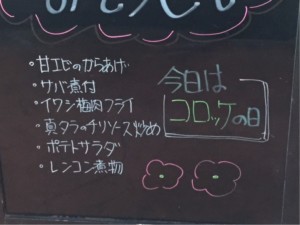 ・甘エビのからあげ
・サバ煮付
・イワシ梅肉フライ
・真タラのチリソース炒め
・ポテトサラダ
・レンコン煮物
今日は
コロッケの日